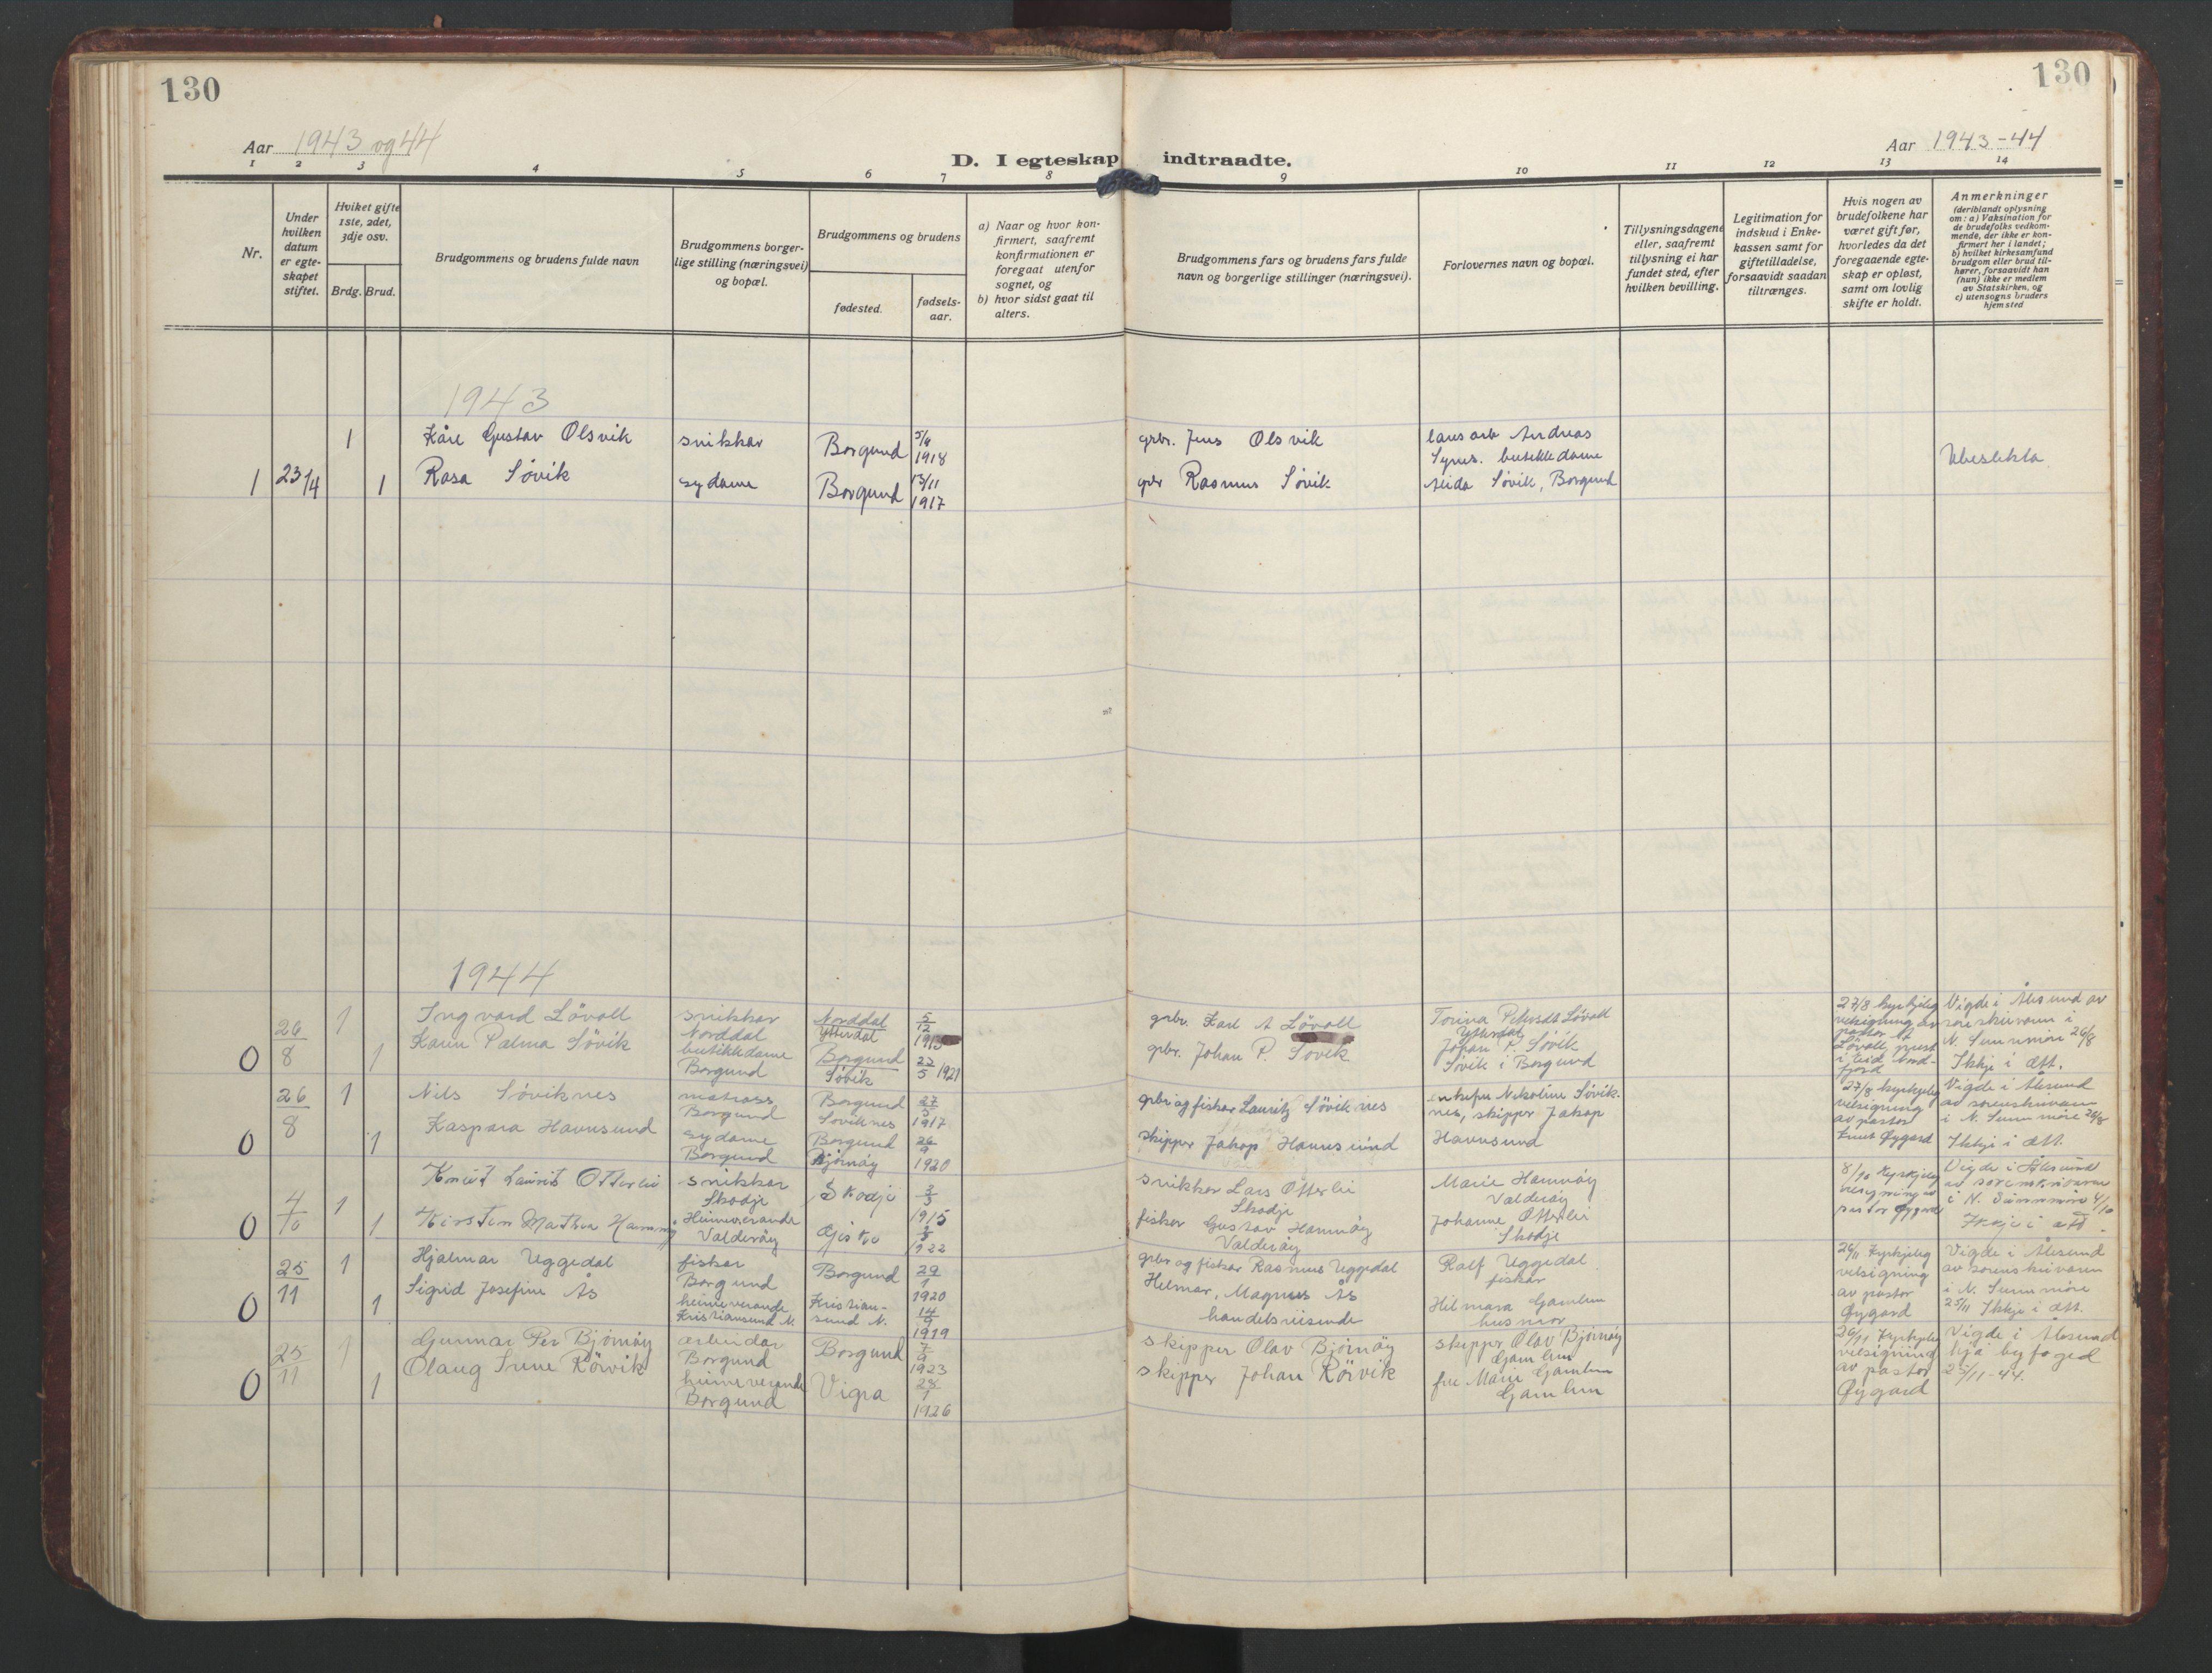 130
130
Aar 1943 og 44
Aar 1943-44
D. I egteskap indtraadte.
1 2 3 4 5 6 7 8 9 10 11 12 13 14
Nr.
Under hvilken datum er egte-skapet stiftet.
Hviket gifte 1ste, 2det, 3dje osv.
Brdg. Brud.
Brudgommens og brudens fulde navn
Brudgommens borger-lige stilling (næringsvei) og bopæl.
Brudgommens og brudens
fødested.
fødsels-aar.
a) Naar og hvor kon-firmert, saafremt konfirmationen er foregaat utenfor sognet, og
b) hvor sidst gaat til alters.
Brudgommens fars og brudens fars fulde navn og borgerlige stillinger (næringsvei).
Forlovernes navn og bopæl.
Tillysningsdagene eller, saafremt tillysning ei har fundet sted, efter hvilken bevilling.
Legitimation for indskud i Enke-kassen samt for giftetilladelse, forsaavidt saadan tiltrænges.
Hvis nogen av brudefolkene har været gift før, hvorledes da det foregaaende egte-skap er opløst, samt om lovlig skifte er holdt.
Anmerkninger
(deriblandt oplysning om: a) Vaksination for de brudefolks vedkom-mende, der ikke er kon-firmert her i landet; b) hvilket kirkesamfund brudgom eller brud til-hører, forsaavidt han (hun) ikke er medlem av Statskirken, og c) utensogns bruders hjemsted
1943
1 Kåre Gustav Olsvik snikkar Borgund 5/4 1918 grbr. Jens Olsvik Andreas
Synes. butikkdame
1 23/4 1 Rasa Søvik sydame Borgund 13/11 1917 gbr Rasmus Søvik Alida Søvik, Borgund
Ubeslekta
1944
0 26/8 1 Ingvard Lövoll snikkar Norddal Norddal Ytterdal 5/12 1915 grbr. Karl A Lövoll Torina Petersdt Lövoll Ytterdal
1 Karen Palma Søvik butikkdame Borgund Borgund Søvik 27/5 1921 gbr. Johan P. Søvik Johan P. Søvik Søvik i Borgund
27/8 kyrkjeleg velsigning av pastor A Lövoll, prest i Eid Nord-fjord
Vigde i Ålesund av sorenskrivaren i N. Sunnmöre 26/8 Ikkje i ætt.
0 26/8 1 Nils Søviknes matross Borgund Borgund Søviknes 27/5 1917 gbr og fiskar Lauritz Søviknes enkefru Nikoline Søvik-nes, skipper Jakop Havnsund
1 Kaspara Havnsund sydame Borgund Borgund Bjørnøy 26/9 1920 skipper Jakop Havnsund
27/8 kyrkjeleg velsigning av pastor Knut Øygard
Vigde i Ålesund av sorenskrivaren i N. Sunnmöre 26/8 Ikkje i ætt.
0 4/10 1 Knut Laurits Otterlei snikkar Skodje Skodje 3/3 1915 snikkar Lars Otterlei Skodje Marie Hamnøy Valderøy
1 Kirsten Mathea Hamnøy Heimeverande Valderøy Giske 1922 fiskar Gustav Hamnøy Valderøy Johanne Otterlei Skodje
8/10 Kyrkjeleg velsigning av pastor Øygard
Vigde i Ålesund av sorenskrivaren i N. Sunnmöre 4/10 Ikkje i ætt.
0 25/11 1 Hjalmar Uggedal fiskar Borgund Borgund 29/1 1920 gbr og fiskar Rasmus Uggedal Ralf Uggedal fiskar
1 Sigrid Josefine Ås heimeverande Kristiansund N. Kristian-sund N. 14/9 1919 Helmar, Magnus Ås handelsreisende Hilmara Gamlem husmor
26/11 Kyrkjeleg velsigning av pastor Øygard
Vigde i Ålesund av sorenskrivaren i N. Sunnmöre 25/11 Ikkje i ætt.
0 25/11 1 Gunnar Per Bjørnøy arbeidar Borgund Borgund 7/9 1923 skipper Olav Bjørnøy skipper Olav Bjørnøy Gamlem
1 Olaug Irene Rörvik heimeverande Borgund Vigra 28/1 1926 skipper Johan Rörvik fru Marie Gamlem Gamlem
26/11 Kyrkjeleg velsigning av pastor Øygard
Vigde i Ålesund hjå byfoged 25/11-44.